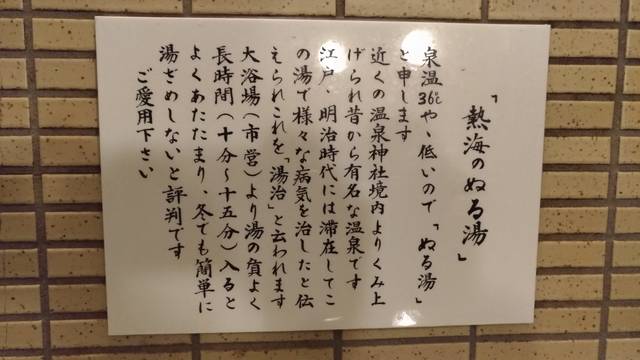 「熱海のぬる湯」
泉温36℃やゝ低いので「ぬる湯」
と申します
近くの温泉神社境内よりくみ上
げられ昔から有名な温泉です
江戸、明治時代には滞在してこ
の湯で様々な病気を治したと伝
えられこれを「湯治」と云われます
大浴場（市営）より湯の質よく
長時間（十分～十五分）入ると
よくあたたまり、冬でも簡単に
湯ざめしないと評判です
ご愛用下さい